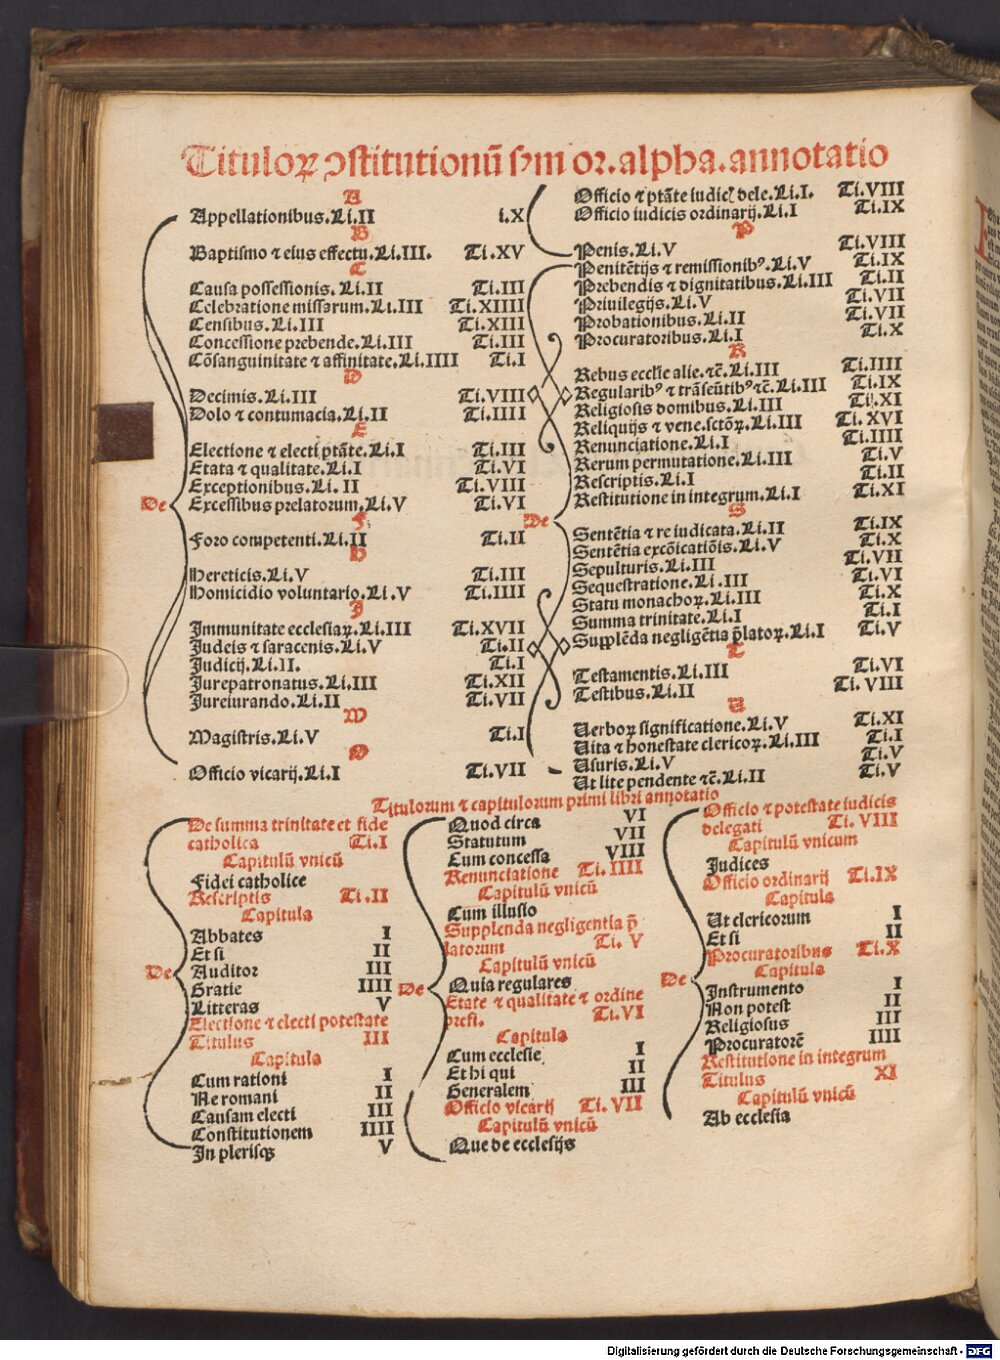 Tituloꝝ ↄstitutionũ ẜm or. alpha. annotatio
A
Appellationibus. Li. II i. X
B
Baptismo ⁊ eius effectu. Li. III. Ti. XV
C
Causa possessionis. Li. II Ti. III
Celebratione missarum. Li. III Ti. XIIII
Censibus. Li. III Ti. XIII
Concessione prebende. Li. III Ti. III
Cõsanguinitate ⁊ affinitate. Li. IIII Ti. I
D
Decimis. Li. III Ti. VIII
Dolo ⁊ contumacia. Li. II Ti. IIII
E
Electione ⁊ electi ptãte. Li. I Ti. III
Etata ⁊ qualitate. Li. I Ti. VI
Exceptionibus. Li. II Ti. VIII
De
Excessibus prelatorum. Li. V Ti. VI
F
Foro competenti. Li. II Ti. II
H
Hereticis. Li. V Ti. III
Homicidio voluntario. Li. V Ti. IIII
I
Immunitate ecclesiaꝝ. Li. III Ti. XVII
Judeis ⁊ saracenis. Li. V Ti. II
Judicij. Li. II. Ti. I
Jurepatronatus. Li. III Ti. XII
Jureiurando. Li. II Ti. VII
M
Magistris. Li. V Ti. I
O
Officio vicarij. Li. I Ti. VII
Officio ⁊ ptãte iudic̃ dele. Li. I. Ti. VIII
Officio iudicis ordinarij. Li. I Ti. IX
P
Penis. Li. V Ti. VIII
Penitẽtijs ⁊ remissionibꝰ. Li. V Ti. IX
Prebendis ⁊ dignitatibus. Li. III Ti. II
Priuilegijs. Li. V Ti. VII
Probationibus. Li. II Ti. VII
Procuratoribus. Li. I Ti. X
R
Rebus ecclie alie. ⁊c̃. Li. III Ti. IIII
Regularibꝰ ⁊ trãseũtibꝰ ⁊c̃. Li. III Ti. IX
Religiosis domibus. Li. III Ti. XI
Reliquijs ⁊ vene. sctõꝝ. Li. III Ti. XVI
Renunciatione. Li. I Ti. IIII
Rerum permutatione. Li. III Ti. V
Rescriptis. Li. I Ti. II
Restitutione in integrum. Li. I Ti. XI
De
S
Sentẽtia ⁊ re iudicata. Li. II Ti. IX
Sentẽtia excõicatiõis. Li. V Ti. X
Sepulturis. Li. III Ti. VII
Sequestratione. Li. III Ti. VI
Statu monachoꝝ. Li. III Ti. X
Summa trinitate. Li. I Ti. I
Supplẽda negligẽtia p̃latoꝝ. Li. I Ti. V
T
Testamentis. Li. III Ti. VI
Testibus. Li. II Ti. VIII
U
Uerboꝝ significatione. Li. V Ti. XI
Uita ⁊ honestate clericoꝝ. Li. III Ti. I
Usuris. Li. V Ti. V
Ut lite pendente ⁊c̃. Li. II Ti. V
Titulorum ⁊ capitulorum primi libri annotatio
De summa trinitate et fide
catholica Ti. I
Capitulũ vnicũ
Fidei catholice
Rescriptis Ti. II
Capitula
Abbates I
Et si II
De
Auditor III
Gratie IIII
Litteras V
Electione ⁊ electi potestate
Titulus III
Capitula
Cum rationi I
Ne romani II
Causam electi III
Constitutionem IIII
In plerisqꝫ V
Quod circa VI
Statutum VII
Cum concessa VIII
Renunciatione Ti. IIII
Capitulũ vnicũ
Cum illusio
Supplenda negligentia p̃
latorum Ti. V
Capitulũ vnicũ
De
Quia regulares
Etate ⁊ qualitate ⁊ ordine
prefi. Ti. VI
Capitula
Cum ecclesie I
Et hi qui II
Generalem III
Officio vicarij Ti. VII
Capitulũ vnicũ
Que de ecclesijs
Officio ⁊ potestate iudicis
delegati Ti. VIII
Capitulũ vnicum
Judices
Officio ordinarij Ti. IX
Capitula
Ut clericorum I
Et si II
Procuratoribus Ti. X
Capitula
De
Instrumento I
Non potest II
Religiosus III
Procuratorẽ IIII
Restitutione in integrum
Titulus XI
Capitulũ vnicũ
Ab ecclesia
Digitalisierung gefördert durch die Deutsche Forschungsgemeinschaft - DFG